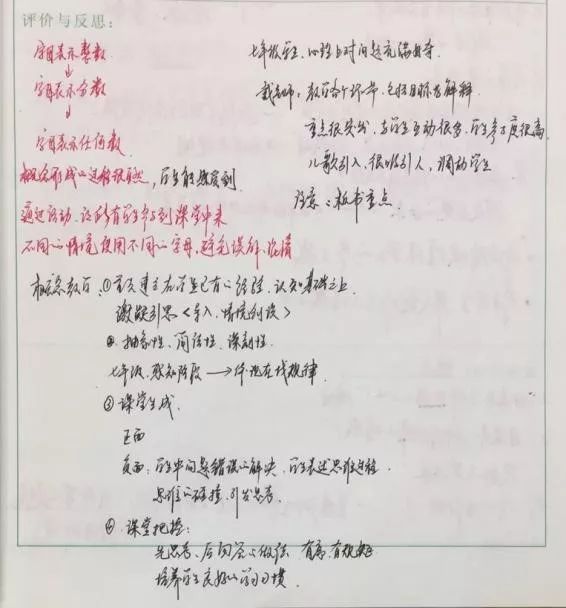 评价与反思:
字母表示整数
↓
字母表示分数
↓
字母表示任何数
概念形成的过程很自然, 学生能想到
通过活动, 让所有学生参与到课堂中来
不同的情境使用不同的字母, 避免误解、混淆
七年级学生, 心理上时间
教学各个环节, 包括目标与解释
重点很突出, 与学生互动很多, 学生参与度很高
儿歌引入, 很吸引人, 调动学生
注意:板书重点
概念教学:①首先建立在学生已有的经验、认知基础之上
激疑引思〈导入、情境创设〉
②抽象性、简洁性、深刻性
七年级, 那个阶段 → 体现在找规律
③课堂生成
正面
负面:学生中间是错误的解决, 学生表述思维过程
思维的碰撞, 引发思考。
④课堂把控:
先思考、后回答的做法 有序, 有规矩
培养学生良好的学习习惯